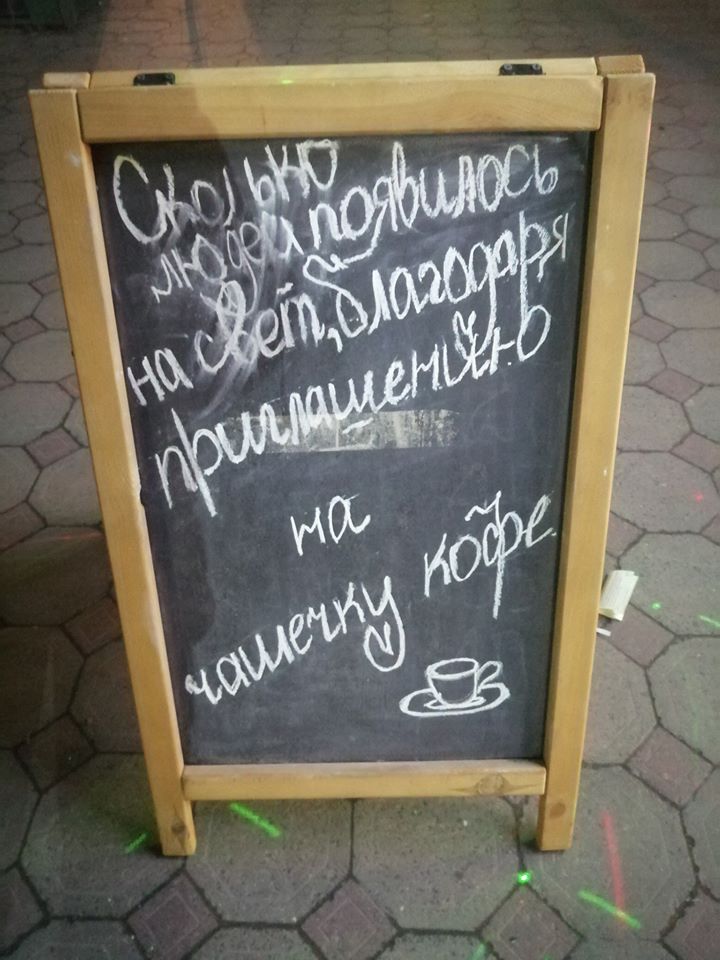 Сколько
людей появилось
на свет, благодаря
приглашению
на
чашечку кофе